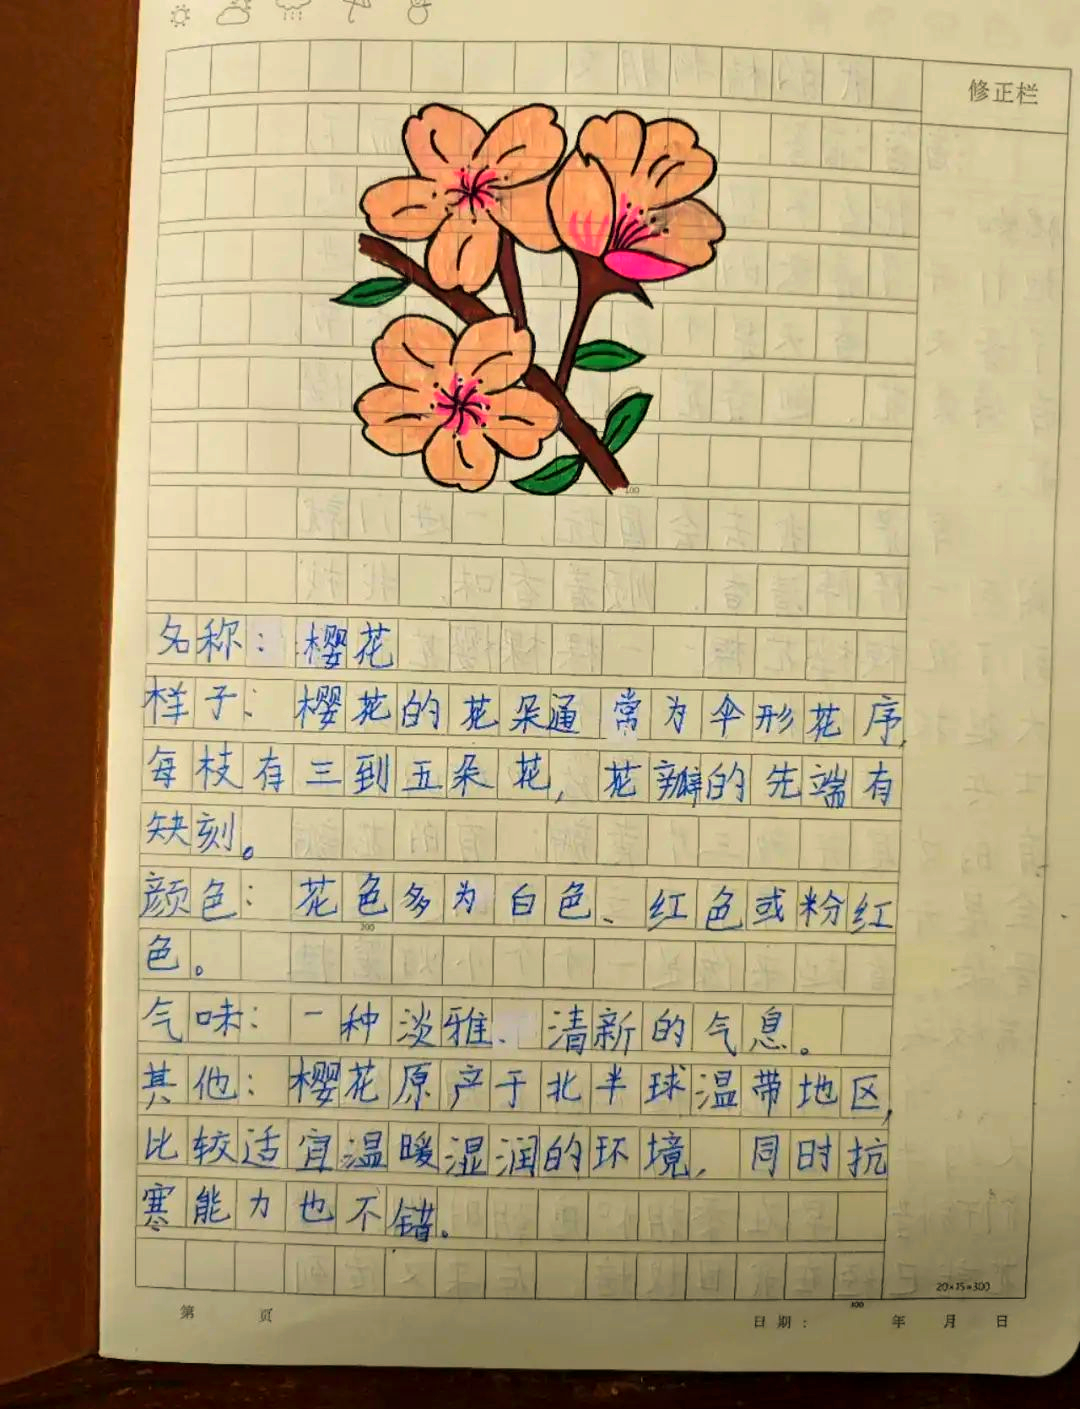 修正栏
100
名称：樱花
样子：樱花的花朵通常为伞形花序，
每枝有三到五朵花，花瓣的先端有
缺刻。
颜色：花色多为白色、红色或粉红
200
色。
气味：一种淡雅、清新的气息。
其他：樱花原产于北半球温带地区，
比较适宜温暖湿润的环境，同时抗
寒能力也不错。
20×15=300
300
第 页 日期： 年 月 日